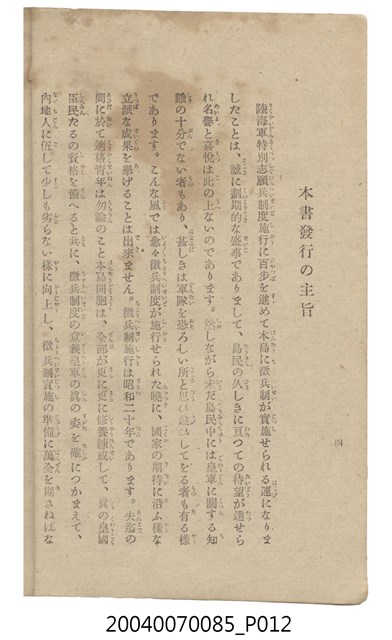 本書發行の主旨
陸海軍特別志願兵制度施行に百步を進めて本島に徵兵制が實施せられる運になりま
したことは、誠に劃期的な盛事でありまして、島民の久しきに亘つての待望が達せら
れ名譽と喜悅は此の上ないのであります。然しながら未だ島民中には皇軍に關する知
識の十分でない者もあり、甚しきは軍隊を恐ろしい所と思ひ込んでをる者も有る樣
であります。こんな風では愈々徵兵制度が施行せられた曉に、國家の期待に沿ふ樣な
立派な成果を擧げることは出來ません。徵兵制施行は昭和二十年であります。夫迄の
間に於て適格靑年は勿論のこと本島同胞は、全部が更に更に修養鍊成して、眞の皇國
臣民たるの資格を備へると共に、徵兵制度の意義皇軍の眞の姿を確につかまえて、
內地人に伍して少しも劣らない樣に向上し、徵兵制實施の準備に萬全を期さねばな
四
20040070085_P012